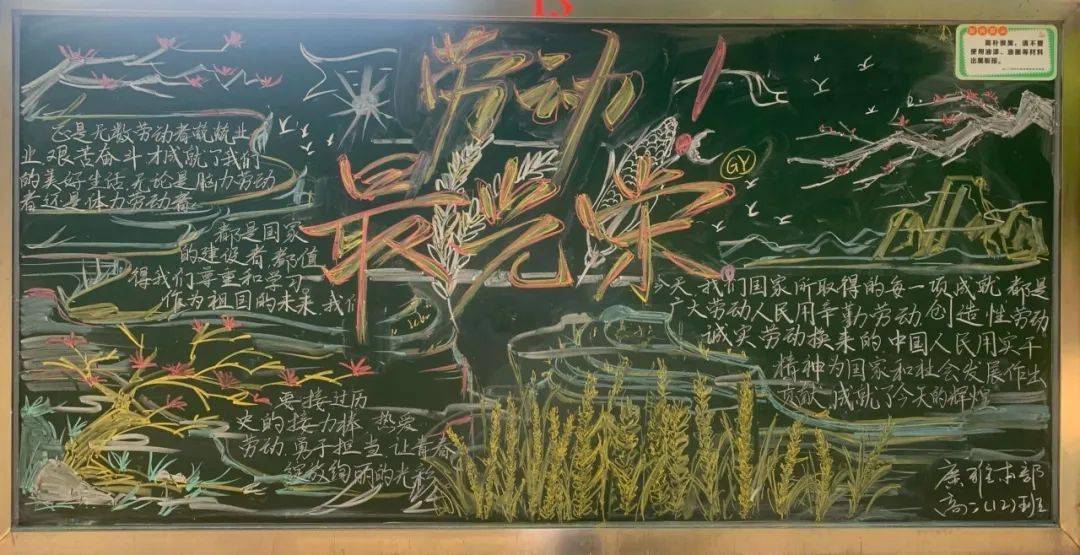 13
劳动
最光荣
GY
高补很美，请不要
使用油漆、油画等材料
出黑板报。
总是无数劳动者兢兢业
业、艰苦奋斗才成就了我们
的美好生活,无论是脑力劳动
者还是体力劳动者
都是国家
的建设者,都值
得我们尊重和学习
作为祖国的未来,我们
要接过历
史的接力棒,热爱
劳动,勇于担当,让青春
绽放绚丽的光彩
今天,我们国家所取得的每一项成就,都是
广大劳动人民用辛勤劳动,创造性劳动
诚实劳动换来的中国人民用实干
精神为国家和社会发展作出
贡献,成就了今天的辉煌
广雅本部
高二(12)班